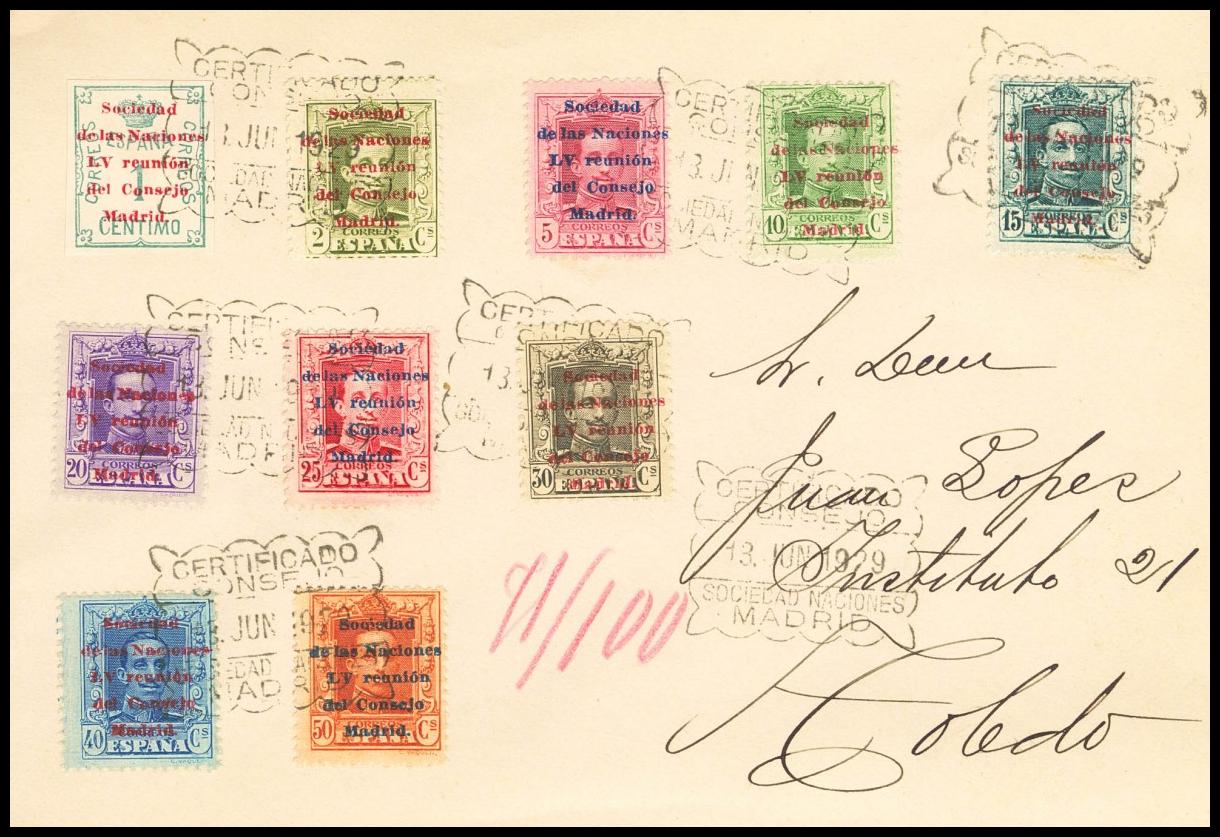 Sociedad
de las Naciones
LV reunión
del Consejo
Madrid.
CORREOS
ESPAÑA
CORREOS
1
CENTIMO
Sociedad
de las Naciones
LV reunión
del Consejo
Madrid.
CORREOS
2 ESPAÑA Cs
Sociedad
de las Naciones
LV reunión
del Consejo
Madrid.
CORREOS
5 ESPAÑA Cs
Sociedad
de las Naciones
LV reunión
del Consejo
Madrid.
CORREOS
10 ESPAÑA Cs
Sociedad
de las Naciones
LV reunión
del Consejo
Madrid.
15 ESPAÑA Cs
Sociedad
de las Naciones
LV reunión
del Consejo
Madrid.
CORREOS
20 ESPAÑA Cs
Sociedad
de las Naciones
LV reunión
del Consejo
Madrid.
CORREOS
25 ESPAÑA Cs
Sociedad
de las Naciones
LV reunión
del Consejo
Madrid.
CORREOS
30 ESPAÑA Cs
Sr. Dn
Juan Lopez
Instituto 21
Toledo
CERTIFICADO
CONSEJO
13. JUN 1929
SOCIEDAD NACIONES
MADRID
CERTIFICADO
CONSEJO
Sociedad
de las Naciones
LV reunión
del Consejo
Madrid.
40 ESPAÑA Cs
Sociedad
de las Naciones
LV reunión
del Consejo
Madrid.
CORREOS
50 ESPAÑA Cs
71/100